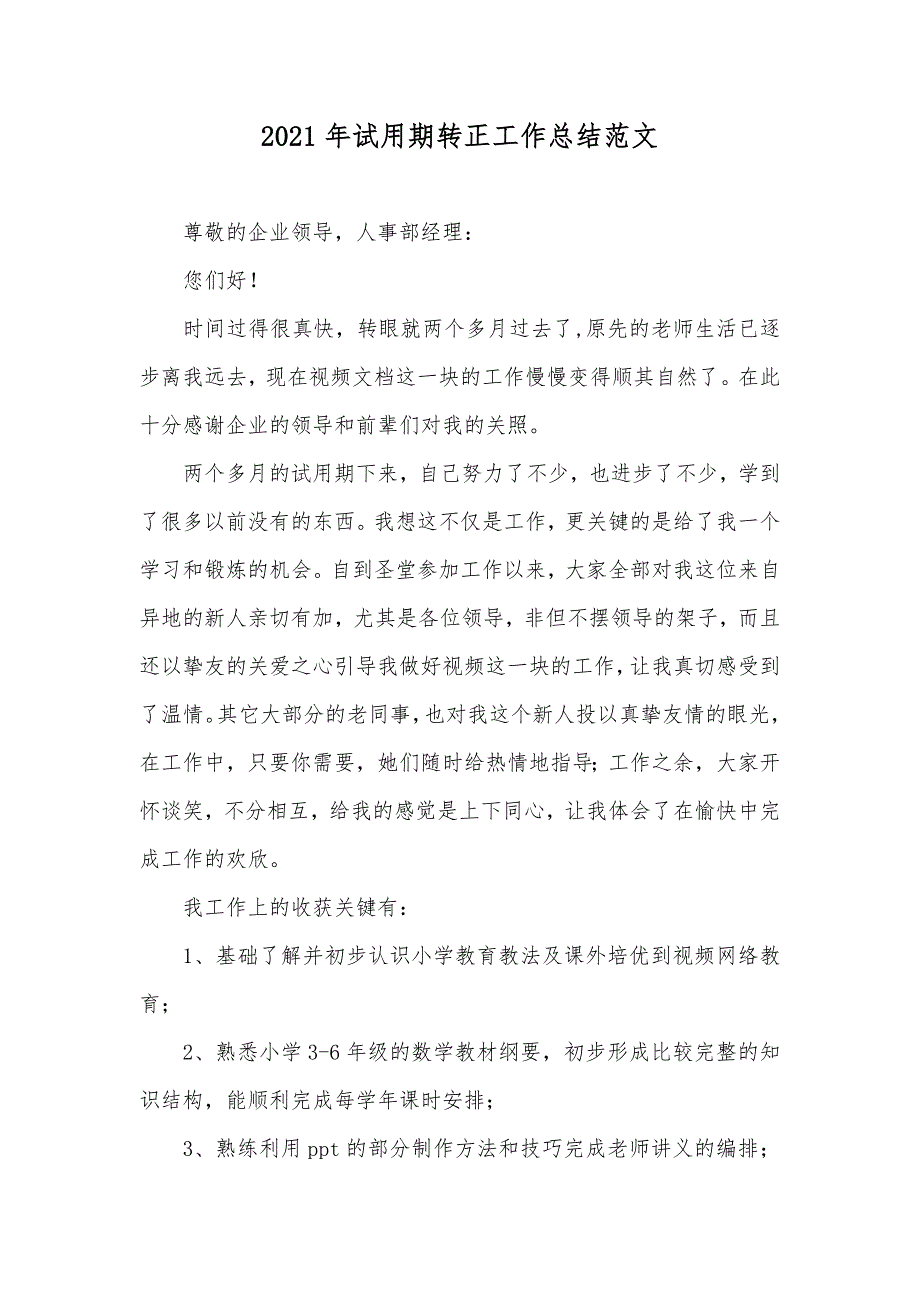 2021年试用期转正工作总结范文
尊敬的企业领导，人事部经理：
您们好！
时间过得很真快，转眼就两个多月过去了,原先的老师生活已逐
步离我远去，现在视频文档这一块的工作慢慢变得顺其自然了。在此
十分感谢企业的领导和前辈们对我的关照。
两个多月的试用期下来，自己努力了不少，也进步了不少，学到
了很多以前没有的东西。我想这不仅是工作，更关键的是给了我一个
学习和锻炼的机会。自到圣堂参加工作以来，大家全部对我这位来自
异地的新人亲切有加，尤其是各位领导，非但不摆领导的架子，而且
还以挚友的关爱之心引导我做好视频这一块的工作，让我真切感受到
了温情。其它大部分的老同事，也对我这个新人投以真挚友情的眼光，
在工作中，只要你需要，她们随时给热情地指导；工作之余，大家开
怀谈笑，不分相互，给我的感觉是上下同心，让我体会了在愉快中完
成工作的欢欣。
我工作上的收获关键有：
1、基础了解并初步认识小学教育教法及课外培优到视频网络教
育；
2、熟悉小学3-6年级的数学教材纲要，初步形成比较完整的知
识结构，能顺利完成每学年课时安排；
3、熟练利用ppt的部分制作方法和技巧完成老师讲义的编排；